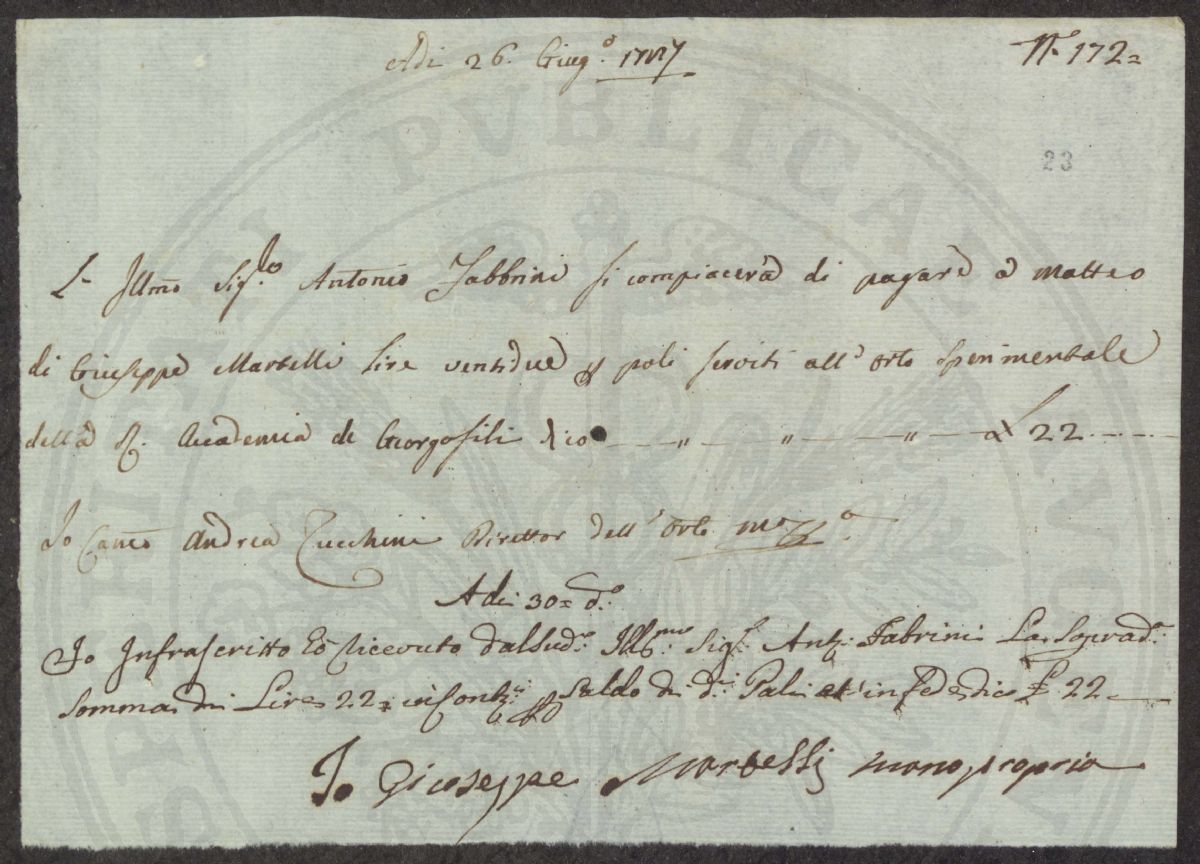 Adi 26. Giug.o
N.o 172=
23
L' Illmo Sig.re Antonio Fabbrini si compiacerà di pagare a Matteo
di Giuseppe Martelli lire ventidue p poli serviti all' Orto sperimentale
della R. Accademia de Georgofili dico — " — " — " — £ 22 ---
Io Canco Andrea Zucchini Direttor dell' Orto
Adi 30= d.o
Io Infrascritto ò ricevuto dal sud.o Ill.mo Sig.r Ant.o Fabrini La Soprad.a
Somma di Lire 22= p Saldo di d.i Pali et in fede dico £ 22 —
Io Giuseppe Martelli mano propria
PVBLICAE